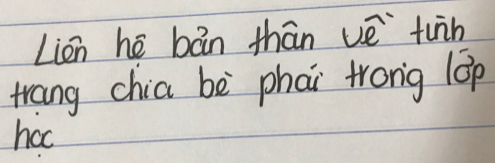 Liên hệ bản thân về tình
trạng chia bè phái trong lớp
học